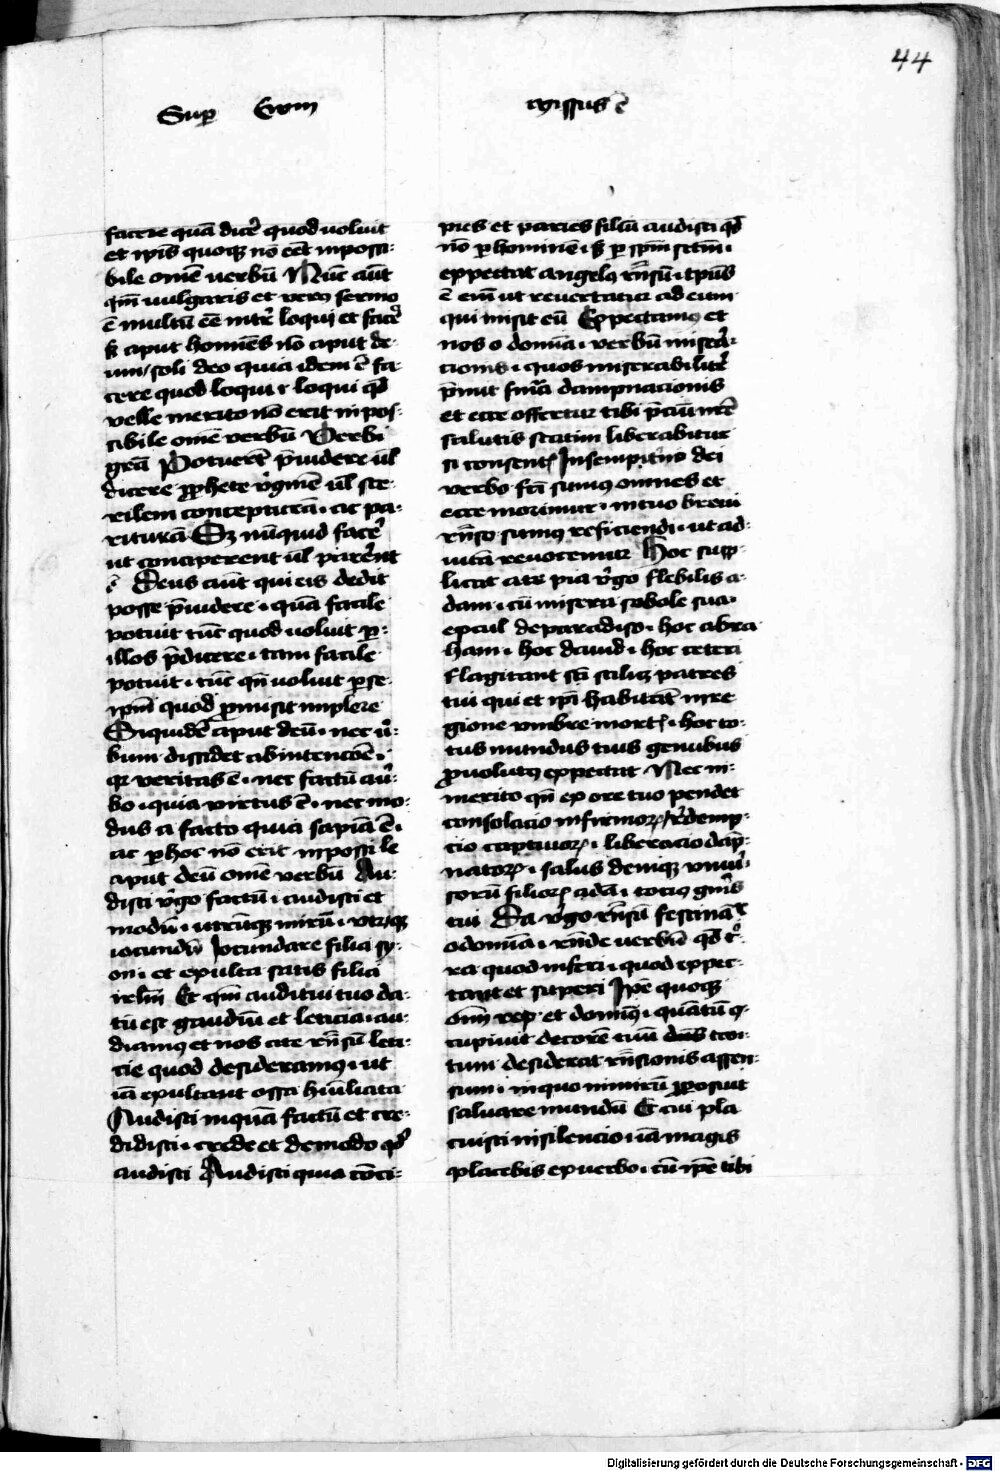 44
Sup Ewm
missus ē
facere quā dicē quod uoluit
et ip̄is quoqꝫ nō eēt inpossi-
bile omē uerbū Nūc aūt
qm̄ uulgaris et verꝯ sermo
ē multū eē int̄ loqui et facē
sꝫ aput homīes nō aput de-
um / soli deo quia idem ē fa-
cere quod loqui ⁊ loqui qd̄
velle merito nō erit inpos-
sibile omē verbū Verbi
grā Potuert̄ p̄uidere ul̄
dicere ꝓphete v̓ginē ul̄ ste-
rilem concepturā · ac pa-
riturā Sꝫ nūquid facē
ut conciperent ul̄ parēnt
Deus aūt qui eis dedit
posse p̄uidere · quā facile
potuit tūc quod uoluit ꝑ-
illos p̄dicere · tam facile
potuit · tūc qn̄ uoluit ꝑse
ip̄m quod ꝓmisit implere
Siquidē aput deū · nec u̓-
bum dissidet ab intencōe ·
qꝛ veritas ē · nec factū au̓-
bo · quia virtus ē · nec mo-
dus a facto quia sapiā ē ·
ac ꝑ hoc nō erit inpossi le
aput deū omē verbū Au-
disti v̓go factū · audisti et
modū · utrūqꝫ mirū · vtrūqꝫ
iocundū Iocundare filia sy-
on · et exulta satis filia
irlm̄ Et qm̄ auditui tuo da-
tū est gaudiū et leticia · au-
diamꝯ et nos a te rn̄sū leti-
cie quod desideramꝯ · ut
iā exultant ossa hūiliata
Audisti inquā factū et cre-
didisti · crede et de modo qd̄
audisti Audisti quia cōci-
pies et paries filiū audisti qd̄
nō ꝑ hominē · sꝫ ꝑ spm̄ sctm̄ ·
expectat angelꝯ rn̄sū · tp̄us
ē em̄ ut reuertatur ad eum
qui misit eū Expectamꝯ et
nos o domīa · verbū misera-
cionis · quos miserabilit̓
p̄mit sn̄ia dampnacionis
et ecce offertur tibi p̄ciū nr̄e
salutis statim liberabitur
si consentꝭ In sempitno dei
verbo fc̄i sumꝯ omnes et
ecce morimur · in tuo breui
rn̄so sumꝯ reficiendi · ut ad
uitā reuocemur Hoc supp-
licat a te pia v̓go flebilis a-
dam · cū misera sobole sua ·
exul de paradiso · hoc abra
ham · hoc dauid · hoc ceteri
flagitant sc̄i scilicꝫ patres
tui qui et ip̄i habitāt in re
gione vmbre mortꝭ · hoc to-
tus mundus tuis genubus
ꝓuolutꝯ expectat Nec in-
merito qn̄ ex ore tuo pendet
consolacio infirmoꝝ / redemp-
cio captiuoꝝ · liberacio dāp-
natoꝝ · salus deniqꝫ vniu̓-
sorū filioꝝ adā · totiꝯ gn̄is
tui Da v̓go rn̄sū festināt̓
o domīa · rn̄de uerbū qd̄ t̓-
ra quod inferi · quod expec-
tant et superi Ip̄e quoqꝫ
om̄ rex et dominꝯ · quātū 9-
cupiuit decorē tuū tan-
tum desiderat rn̄sionis assen-
sum · in quo nimirū ꝓposuit
saluare mundū Et cui pla
cuisti in silencio · iā magis
placebis ex uerbo · cū ip̄e tibi
Digitalisierung gefördert durch die Deutsche Forschungsgemeinschaft - DFG